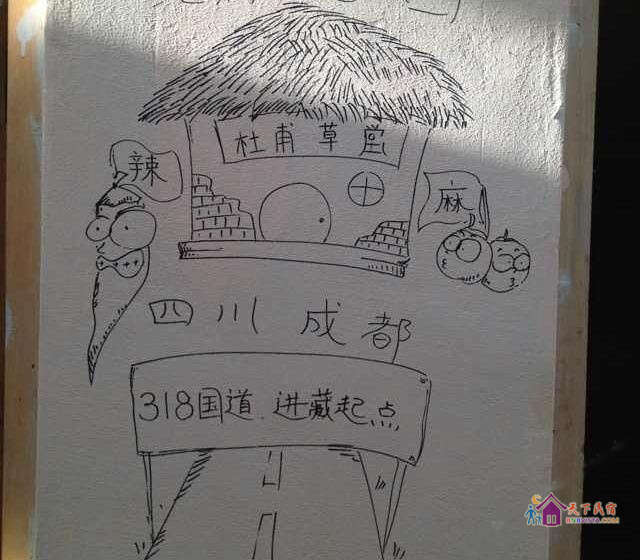 杜甫草堂
辣
麻
四川成都
318国道.进藏起点
天下民宿